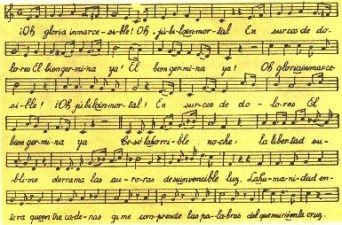 ¡Oh gloria inmarce-si-ble! Oh, jú-bi-loin-mor-tal! En surcos de do-
lo-res El biengermi-na ya! El bien germi-na ya! Oh gloriainmarce-
si-ble! ¡Oh jú-bi-loin-mor-tal! En sur-cos de do-lo-res El
bien germi-na ya Ce-só laho-rri-ble no-che! la libertad su-
bli-me derrama las au-ro-ras desuinvencible luz, Lahu-ma-ni-dad en-
tera quen tre ca-de-nas gi-me com-prende las pa-la-bras del quemurióenla cruz.